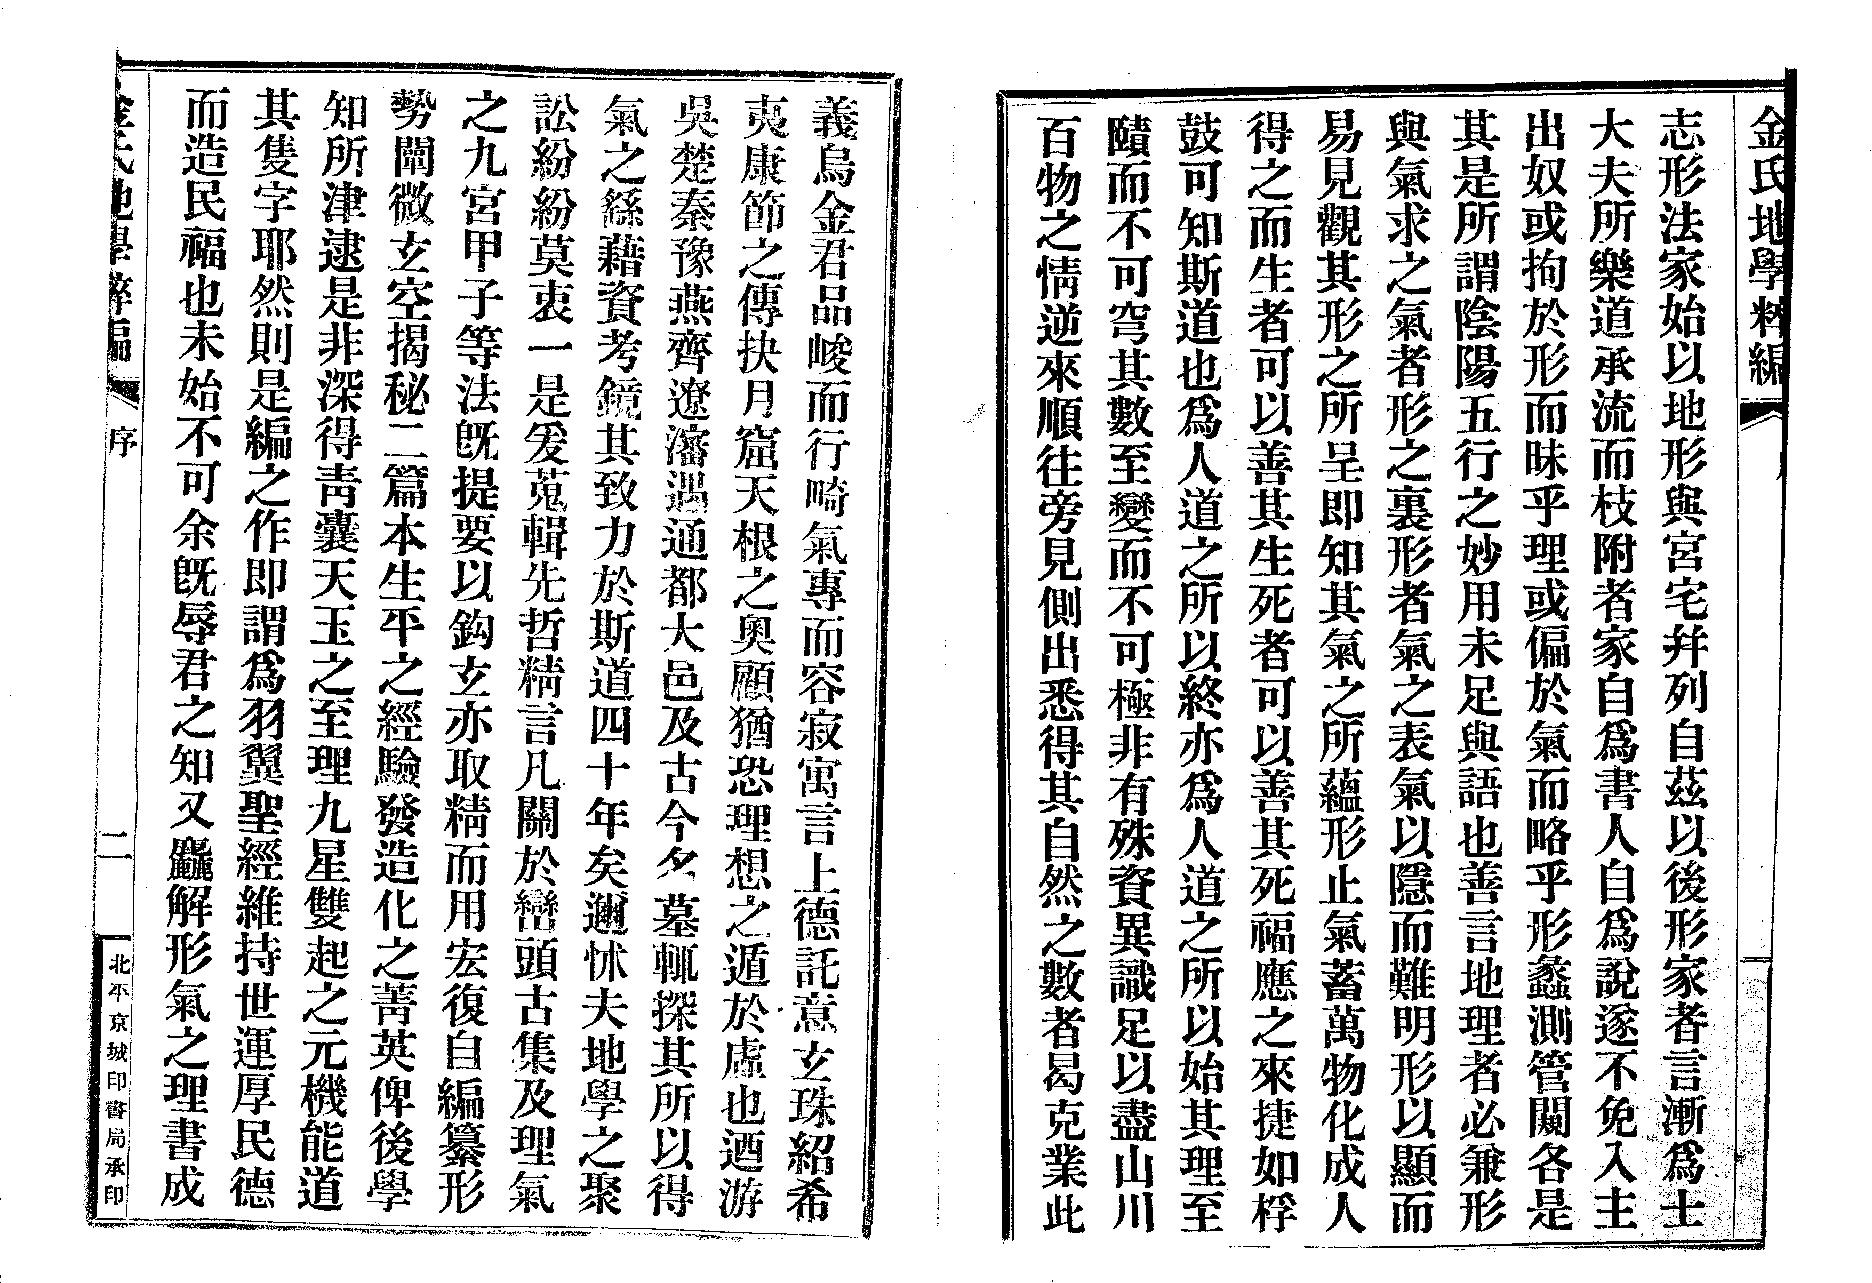 金氏地學粹編
志形法家始以地形與宮宅幷列自茲以後形家者言漸爲士
大夫所樂道承流而枝附者家自爲書人自爲說遂不免入主
出奴或拘於形而昧乎理或偏於氣而略乎形蠡測管闚各是
其是所謂陰陽五行之妙用未足與語也善言地理者必兼形
與氣求之氣者形之裏形者氣之表氣以隱而難明形以顯而
易見觀其形之所呈即知其氣之所蘊形止氣蓄萬物化成人
得之而生者可以善其生死者可以善其死福應之來捷如桴
鼓可知斯道也爲人道之所以終亦爲人道之所以始其理至
賾而不可穹其數至變而不可極非有殊資異識足以盡山川
百物之情逆來順往旁見側出悉得其自然之數者曷克業此
義烏金君品峻而行畸氣專而容寂寓言上德託意玄珠紹希
夷康節之傳抉月窟天根之奧顧猶恐理想之遁於虛也迺游
吳楚秦豫燕齊遼瀋遇通都大邑及古今名墓輒探其所以得
氣之繇藉資考鏡其致力於斯道四十年矣邇怵夫地學之聚
訟紛紛莫衷一是爰蒐輯先哲精言凡關於巒頭古集及理氣
之九宮甲子等法旣提要以鈎玄亦取精而用宏復自編纂形
勢闡微玄空揭秘二篇本生平之經驗發造化之菁英俾後學
知所津逮是非深得靑囊天玉之至理九星雙起之元機能道
其隻字耶然則是編之作即謂爲羽翼聖經維持世運厚民德
而造民福也未始不可余旣辱君之知又麤解形氣之理書成
金氏地學粹編
序
二
北平京城印書局承印